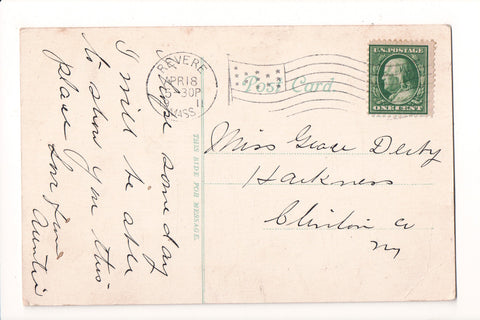 I hope some day
I will be able
to show you this
place Love from
Auntie
THIS SIDE FOR MESSAGE.
REVERE
APR 18
5 30P
11
MASS.
Post Card.
U.S. POSTAGE
ONE CENT
Miss Grace Derby
Harkness
Clinton Co
NY